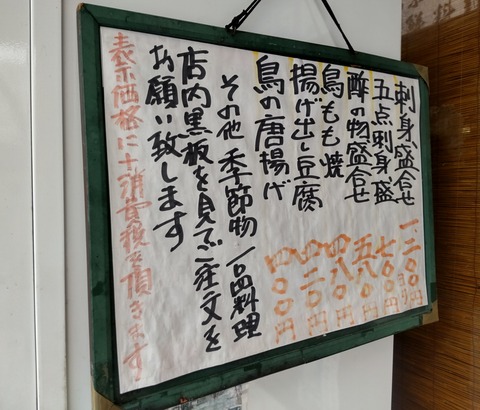 刺身盛合せ 一、二〇〇円ヨリ
五点刺身盛 七〇〇円
酢の物盛合せ 五八〇円
鳥もも焼 四八〇円
揚げ出し豆腐 四二〇円
鳥の唐揚げ 四〇〇円
その他 季節物 一品料理
店内黒板を見てご注文を
お願い致します
表示価格に+消費税を頂きます